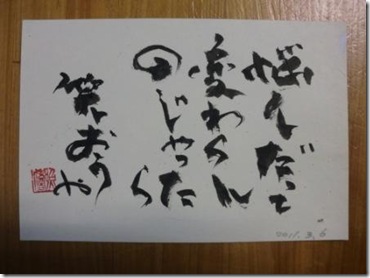 悩んだって
変わらん
のじゃったら
笑おうや
2011.3.6